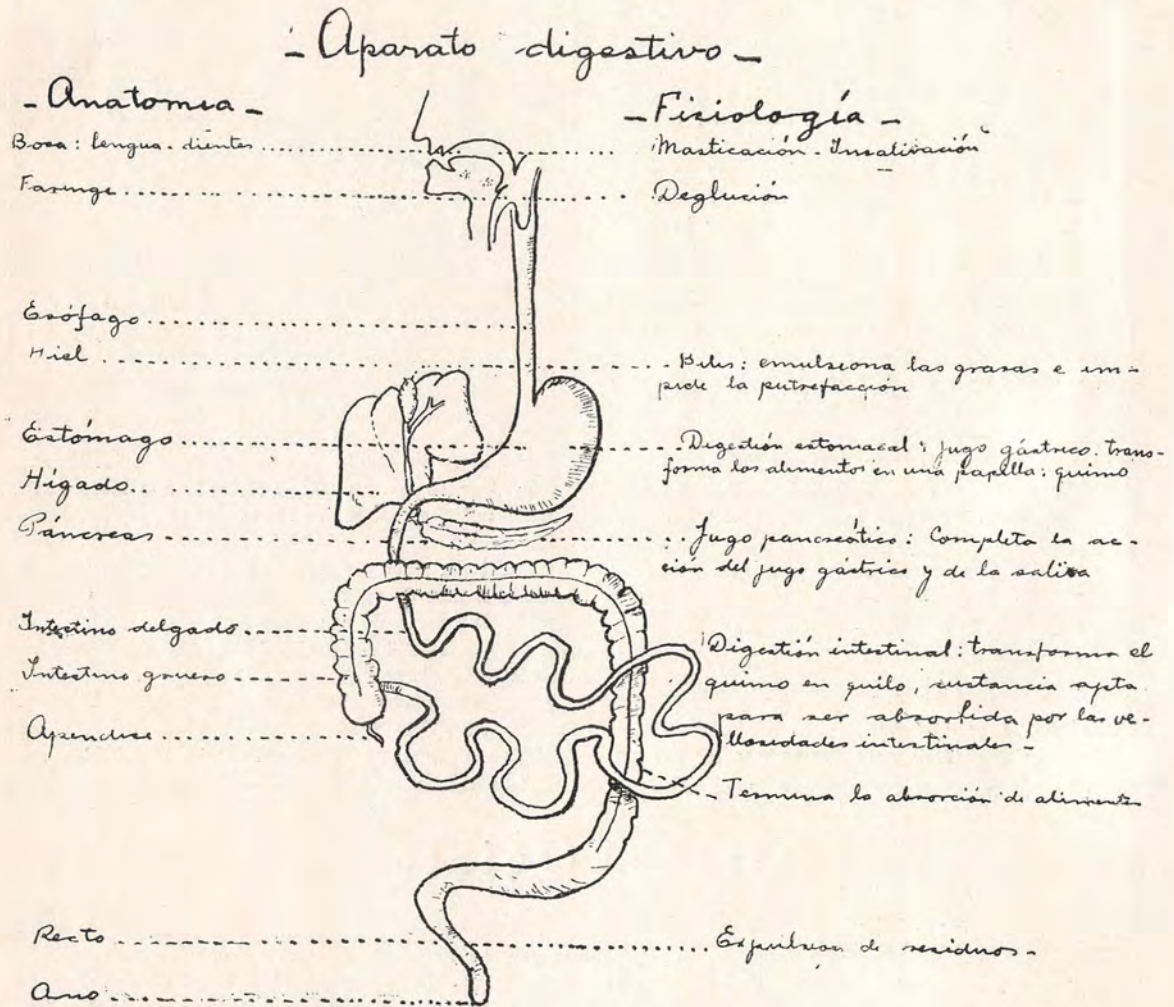 - Aparato digestivo -
- Anatomia -
Boca: lengua. dientes
Faringe
Esófago
Hiel
Estómago
Hígado
Páncreas
Intestino delgado
Intestino grueso
Apendice
Recto
Ano
- Fisiología -
Masticación - Insalivación
Deglución
Bilis: emulsiona las grasas e im-
pide la putrefacción
Digestión estomacal: jugo gástrico. trans-
forma los alimentos en una papilla: quimo
Jugo pancreático: Completa la ac-
ción del jugo gástrico y de la saliva
Digestión intestinal: transforma el
quimo en quilo, sustancia apta
para ser absorbida por las ve-
llosidades intestinales -
Termina la absorción de alimentos
Expulsion de residuos -